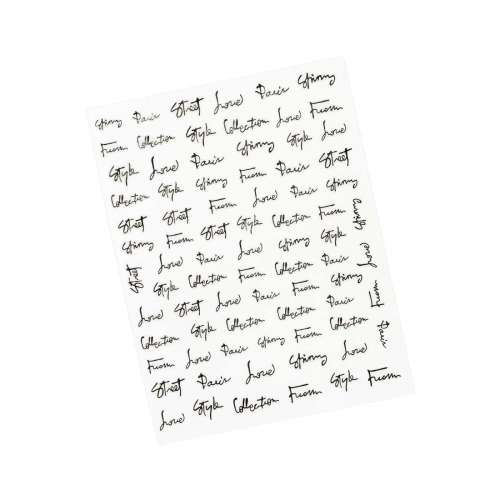 Skinny Paris Street Love Paris Skinny
From Collection Style Collection Love From
Style Love Paris Skinny Style Love
Collection Style Skinny From Paris Street
Street Street From Love Paris Skinny
Skinny From Street Style Collection From Skinny
Street Love Paris Love Skinny Style Love
Style Collection From Collection Paris
Love Street Love Paris From Skinny From
Collection Style Collection Collection Paris
From Love Paris Skinny From Collection Paris
Street Paris Love Skinny Love
Love Style Collection From Style From